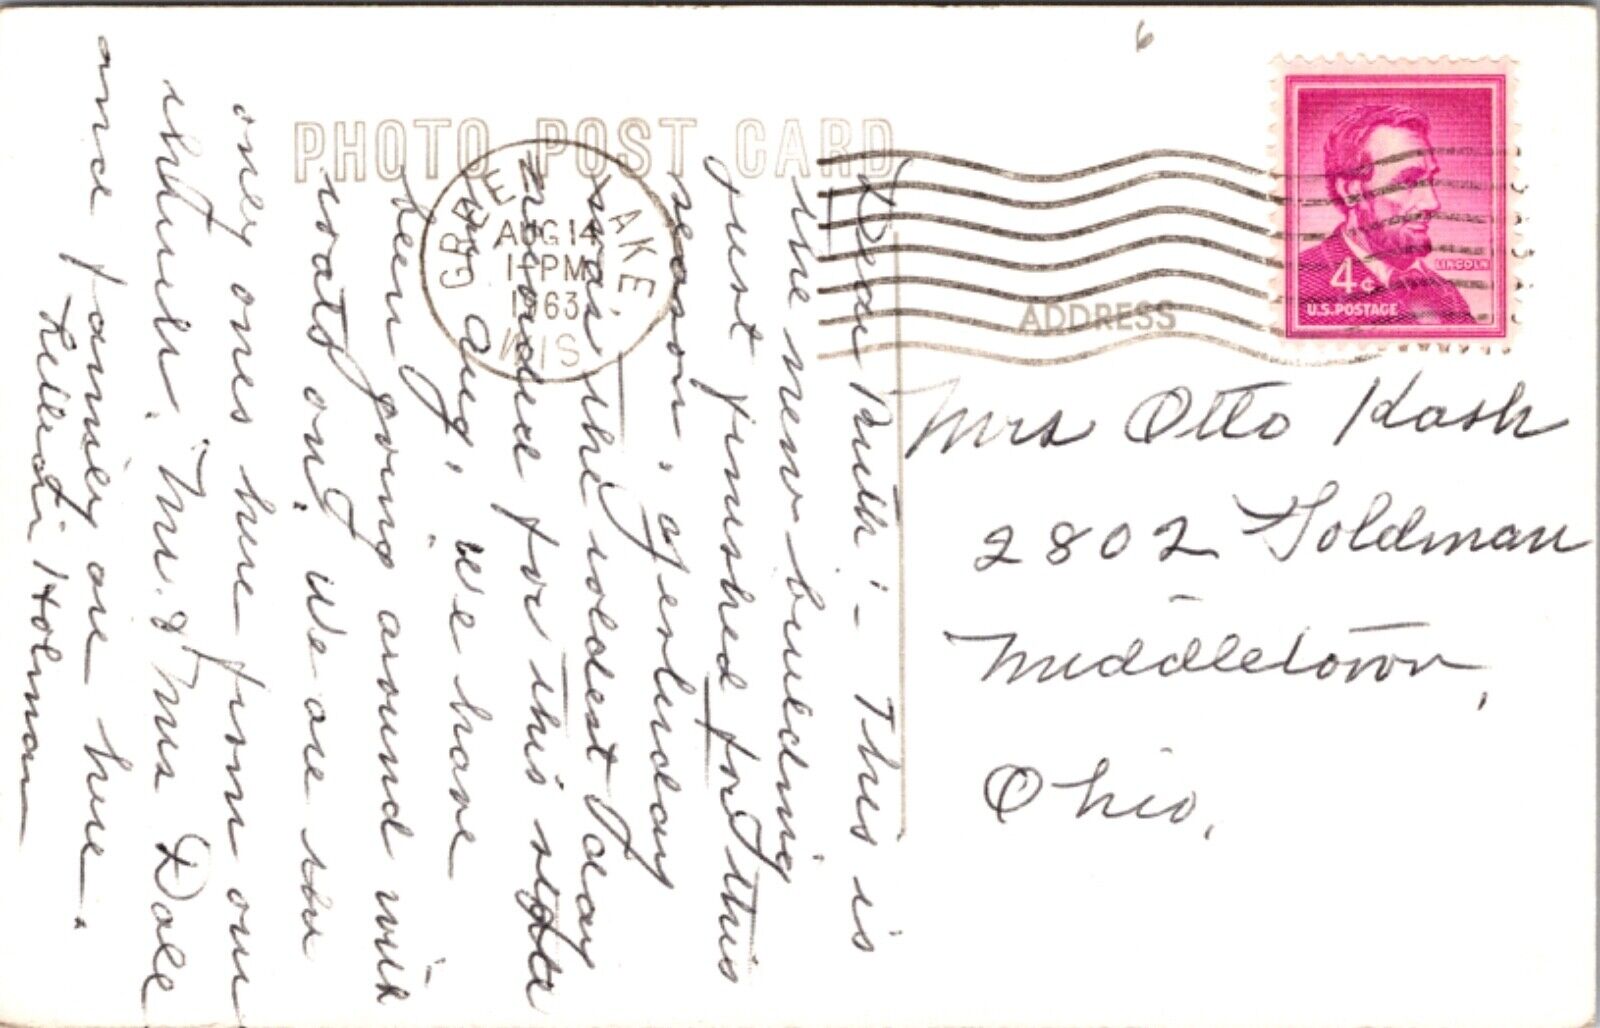 PHOTO POST CARD
Dear Ruth! - This is
the new building
just finished for this
season. Yesterday
was the coldest day
recorded for this state
in Aug. We have
been going around with
coats on. We are the
only ones here from our
church. Mr. & Mrs Dale
and family are here.
Holman
GREEN LAKE
AUG 14
1-PM
1963
WIS
4¢
LINCOLN
U.S. POSTAGE
ADDRESS
Mrs Otto Kash
2802 Goldman
Middletown,
Ohio.